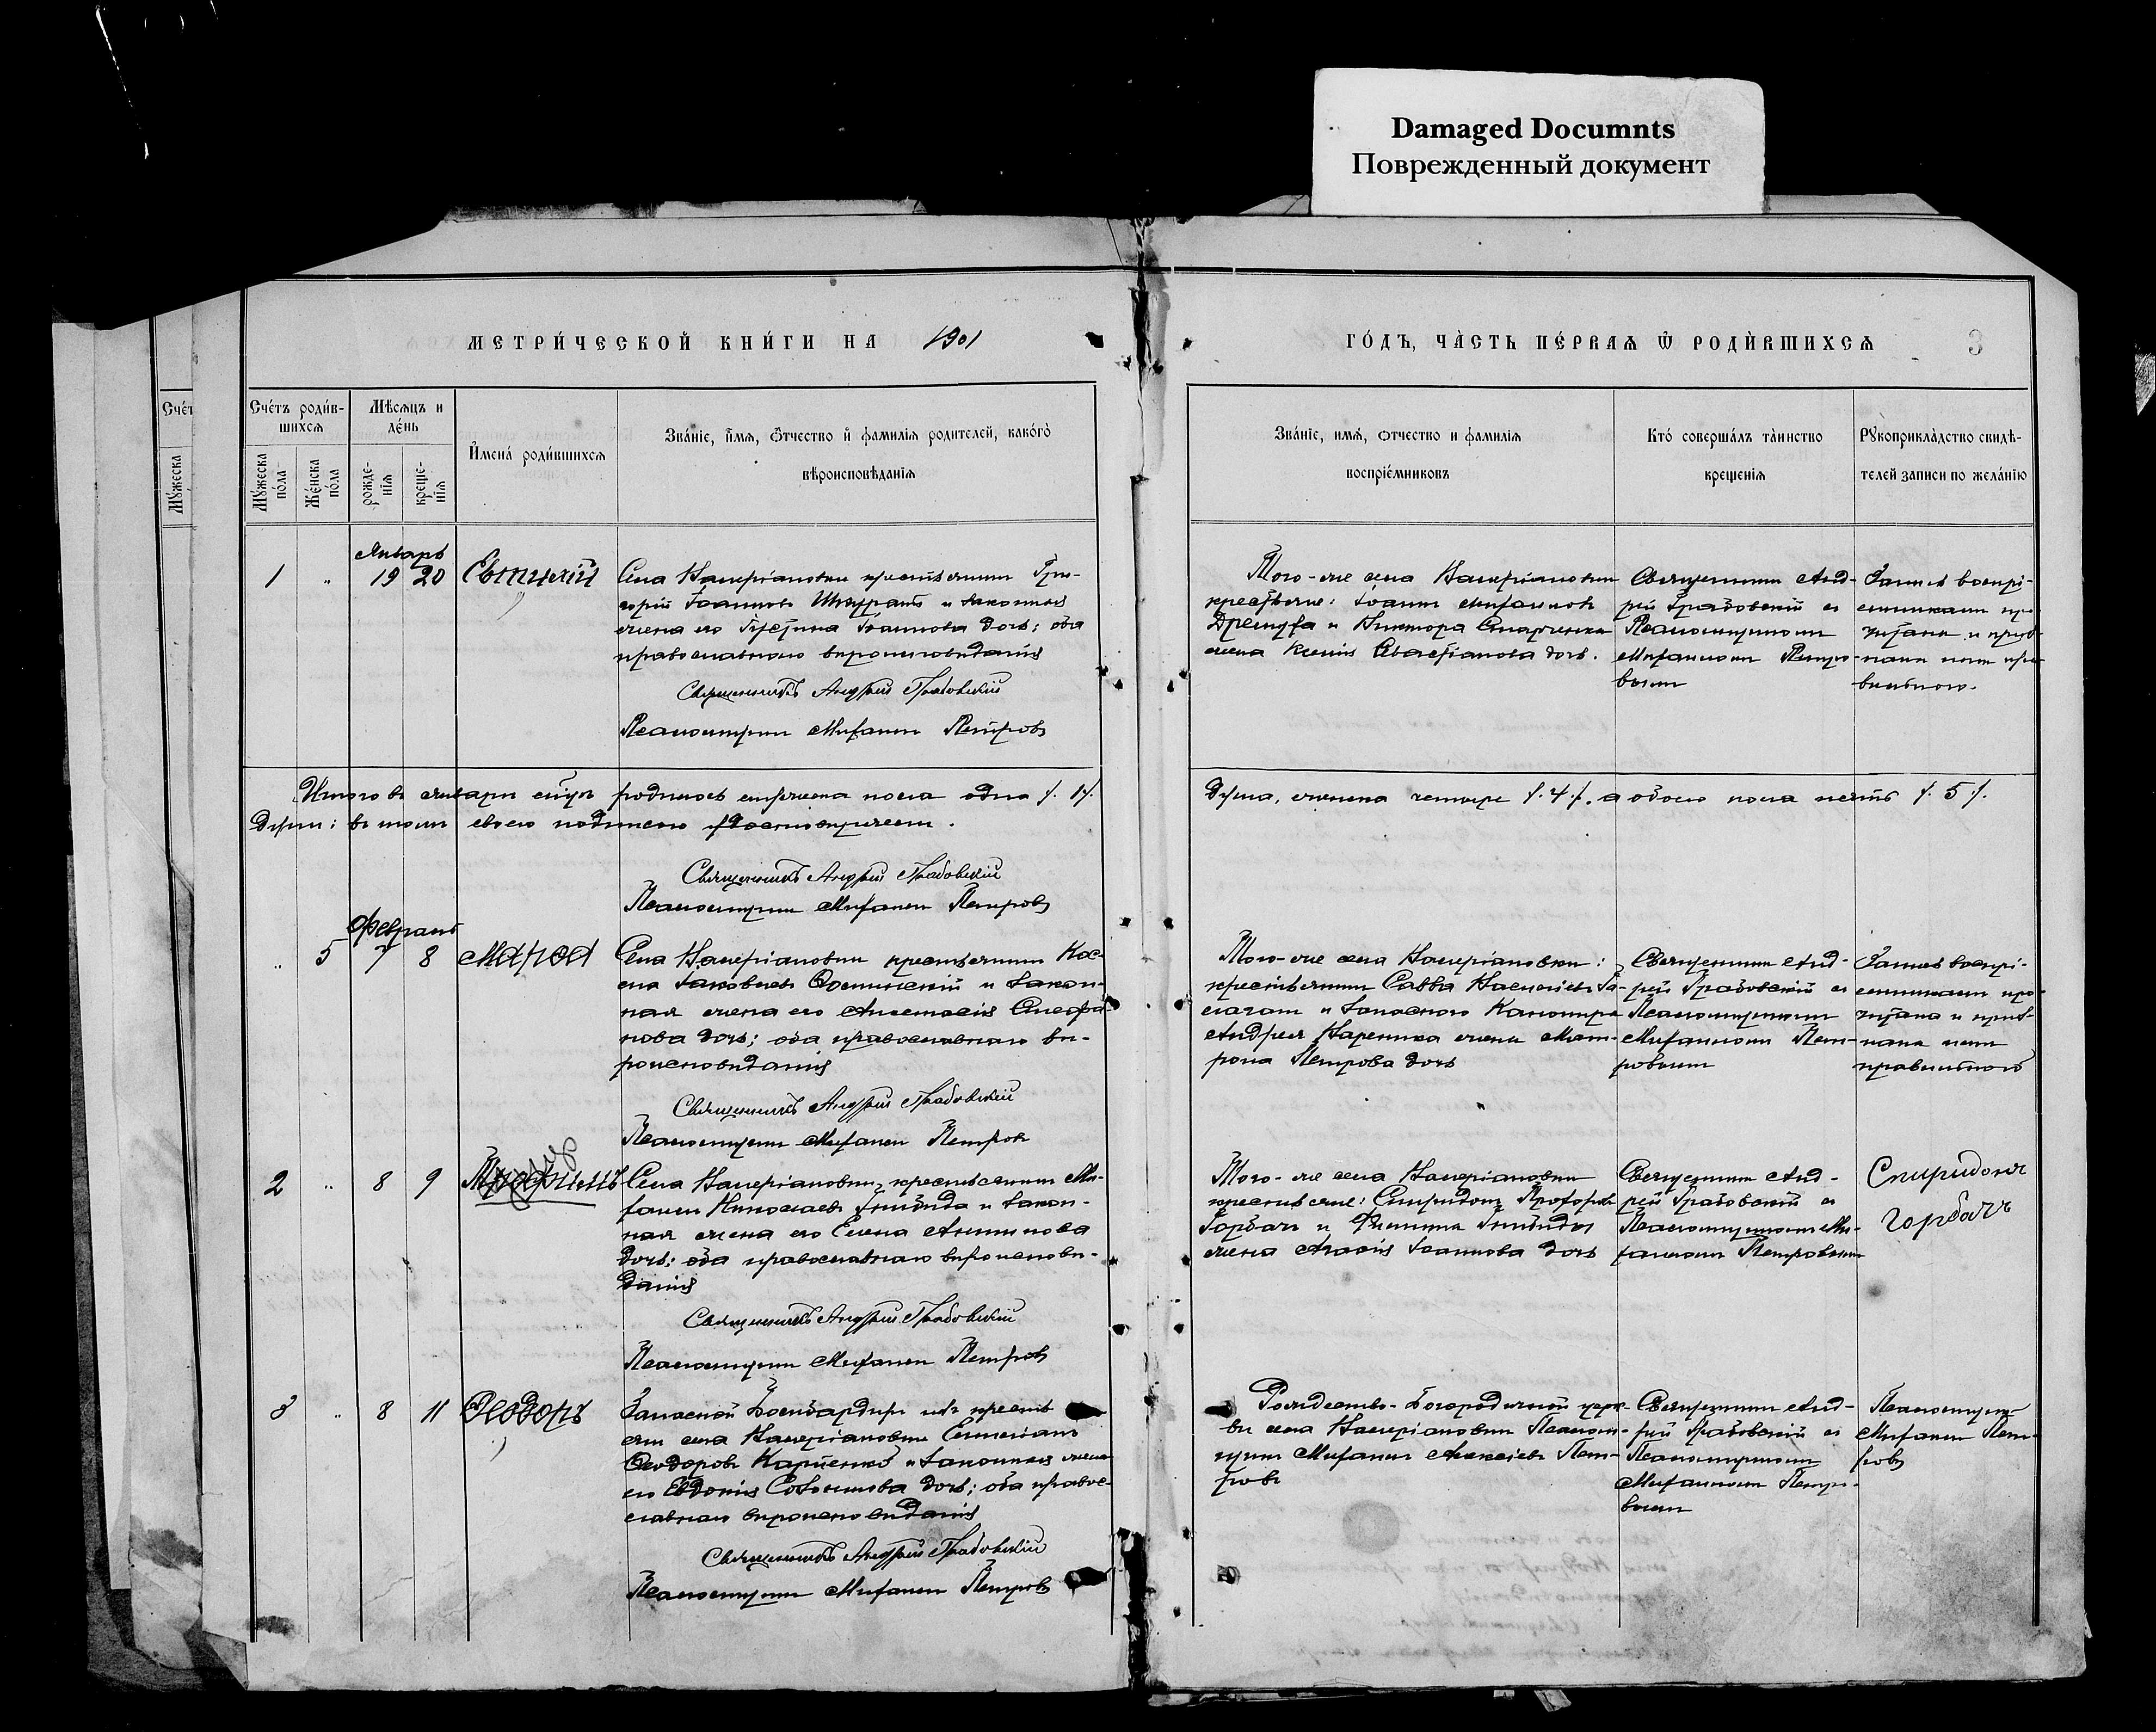 Damaged Documnts
Поврежденный документ
МЕТРИ́ЧЕСКОЙ КНИ́ГИ НА 1901
ГО́ДЪ, ЧА̀СТЬ ПЕ́РВАѦ Ѿ РОДЍВШИХСѦ 3
Сче́т
Мꙋ́жеска
Сче́тъ роди́в-
шихсѧ
Мꙋ́жеска по́ла
Же́нска по́ла
Мѣ́сѧцъ и
де́нь
рожде-
нїѧ
креще-
нїѧ
И҆мена́ роди́вшихсѧ
Зва́нїе, и҆́мѧ, ѻ҆́тчество и҆ фамилїѧ родителей, како́гѡ
вѣроисповѣ́данїѧ
Зва́нїе, имѧ́, ѻтчество и фамилїѧ
воспрїе́мниковъ
Кто́ совершáлъ тàинство
крещенїѧ
Рꙋкоприклàдство свидѣ́-
телей записи по жела́нїю
Январь
1 " 19 20 Евтихій
Села Валеріановки крестьянинъ Гри-
горій Іоанновъ и законная
жена его Іоаннова дочь; оба
православнаго вѣроисповѣданія
Священникъ Андрей Грабовскій
Псаломщикъ Михаилъ Петровъ
Того-же села Валеріановки
крестьяне: Іоаннъ Михаиловъ
и Виктора
жена Ксенія дочь.
Священникъ Анд-
рей Грабовскій съ
Псаломщикомъ
Михаиломъ Петро-
вымъ
Запись воспрі-
емникамъ про-
читана и приз-
нана ими пра-
вильною.
Итого въ январѣ мужеска пола одна /. 1 /.
душа, женска четыре /. 4 /. а обоего пола пять /. 5 /.
душъ: въ томъ своею подписью удостовѣряемъ.
Священникъ Андрей Грабовскій
Псаломщикъ Михаилъ Петровъ
Февраль
" 5 7 8 Марѳа
Села Валеріановки крестьянинъ Кос-
ма Іаковлевъ и закон-
ная жена его Анастасія Стефа-
нова дочь; оба православнаго вѣ-
роисповѣданія
Священникъ Андрей Грабовскій
Псаломщикъ Михаилъ Петровъ
Того-же села Валеріановки:
крестьянинъ Савва
и запаснаго Канонира
Андрея жена Мат-
рона Петрова дочь
Священникъ Анд-
рей Грабовскій съ
Псаломщикомъ
Михаиломъ Пет-
ровымъ
Запись воспрі-
емникамъ про-
читана и приз-
нана ими
правильною
2 " 8 9
Села Валеріановки, крестьянинъ Ми-
хаилъ Николаевъ и закон-
ная жена его Елена
дочь; оба православнаго вѣроисповѣ-
данія
Священникъ Андрей Грабовскій
Псаломщикъ Михаилъ Петровъ
Того-же села Валеріановки
крестьяне: Спиридонъ Прохоровъ
Горбачъ и Филиппа
жена Агафія Іоаннова дочь
Священникъ Анд-
рей Грабовскій съ
Псаломщикомъ Ми-
хаиломъ Петровымъ
Спиридонъ
Горбачъ
3 " 8 11 Ѳеодоръ
Запасной Бомбардиръ изъ крестья
села Валеріановки
Ѳеодоровъ Карпенко и законная жена
его Евдокія дочь; оба правос-
лавнаго вѣроисповѣданія
Священникъ Андрей Грабовскій
Псаломщикъ Михаилъ Петровъ
Рождество-Богородичной церк-
ви села Валеріановки Псалом-
щикъ Михаилъ Алексіевъ Пет-
ровъ
Священникъ Анд-
рей Грабовскій съ
Псаломщикомъ
Михаиломъ Петро-
вымъ
Псаломщикъ
Михаилъ Пет-
ровъ